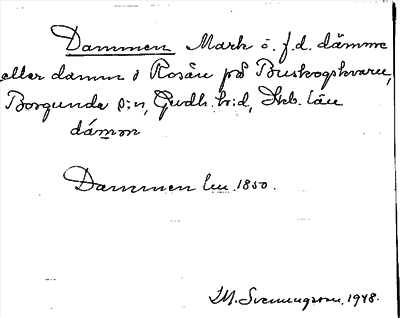 Dammen Mark ö. f.d. dämme
eller damm i Rosån på Buskogskvarn,
Borgunda s:n, Gudh. h:d, Skb. län
dámm
Dammen lm. 1850.
M. Svenungsson. 1948.